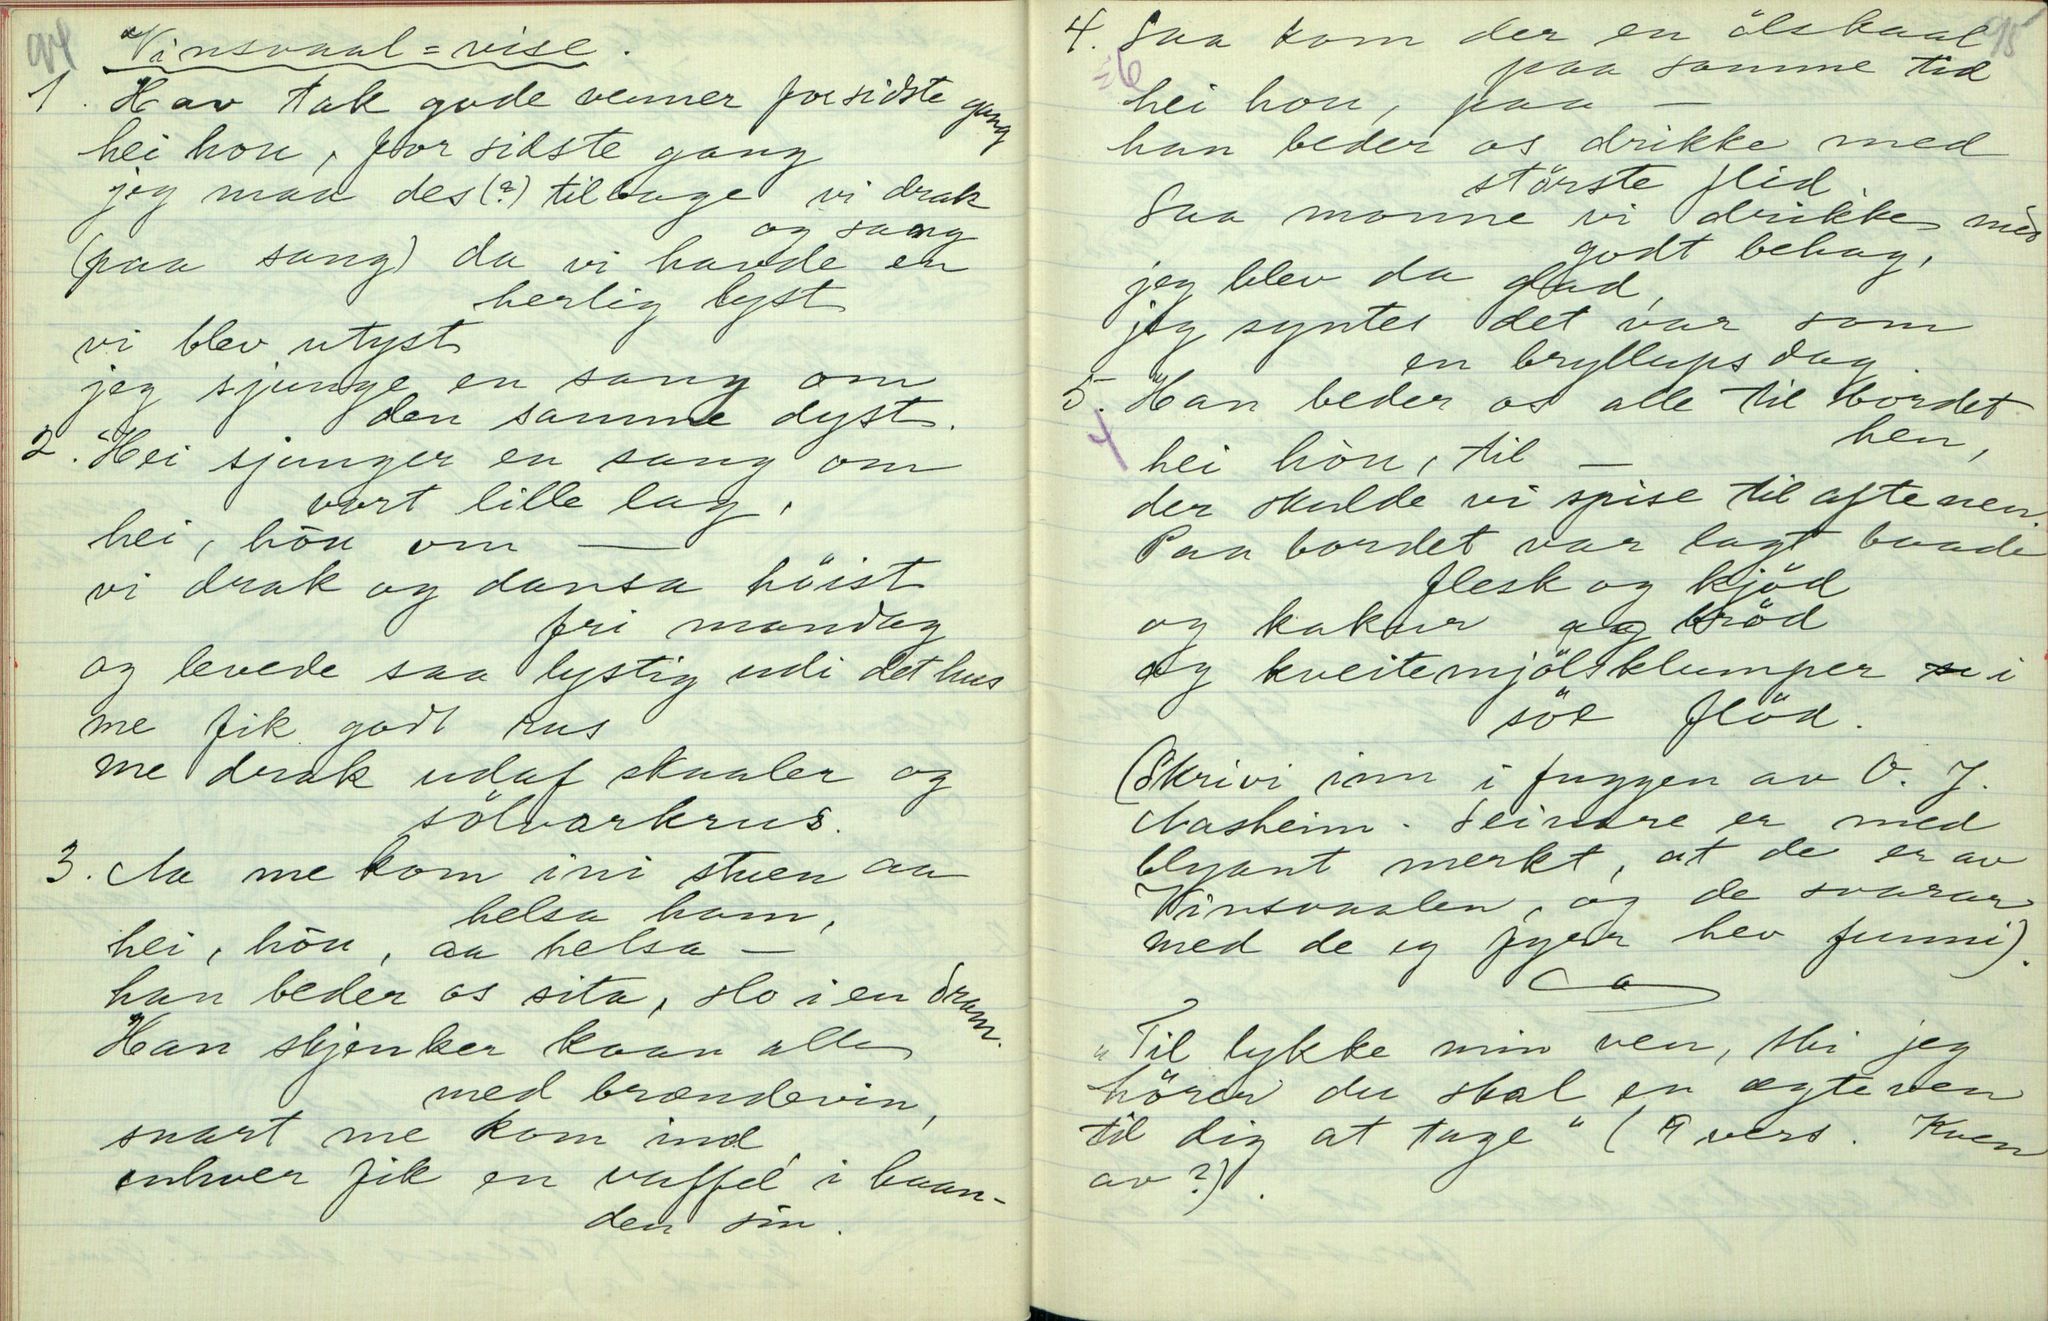 94
Vinsvaal = vise.
1. Hav tak gode venner for sidste gang
hei hou, for sidste gang
jeg maa des (?) tilbage vi drak
og sang
(paa sang) da vi havde en
herlig lyst
vi blev utyst
jeg sjunge en sang om
den samme dyst.
2. Hei sjunger en sang om
vort lille lag,
hei, hòu om —
vi drak og dansa höist
fri mandag
og levede saa lystig udi det hus
me fik godt rus
me drak udaf skaaler og
sölvarkrus.
3. Aa me kom ini stuen aa
helsa ham,
hei, hòu, aa helsa —
han beder os sita, slo i en dram.
Han skjenker kaan alle
med brændevin,
snart me kom ind
enhver fik en vaffel i haan-
den sin.
95
4. Saa kom der en ölskaal
paa samme tid
=6
hei hou, paa —
han beder os drikke med
störste flid
Saa monne vi drikke med
godt behag,
jeg blev da glad,
jeg syntes det var som
en bryllupsdag
5. Han beder os alle til bordet
hen,
4
hei hòu, til —
der skulde vi spise til aftenen.
Paa bordet var lagt baade
flesk og kjöd
og kakur og bröd
og kveitemjölsklumper i
söe flöd.
(Skrivi inn i fuggen av O. J.
Aasheim. Seinare er med
blyant merkt, at de er av
Vinsvaalen, og de svarar
med de eg fyrr hev funni).
"Til lykke min ven, thi jeg
hörer du skal en ægteven
til dig at tage" (9 vers. Kven
av?).